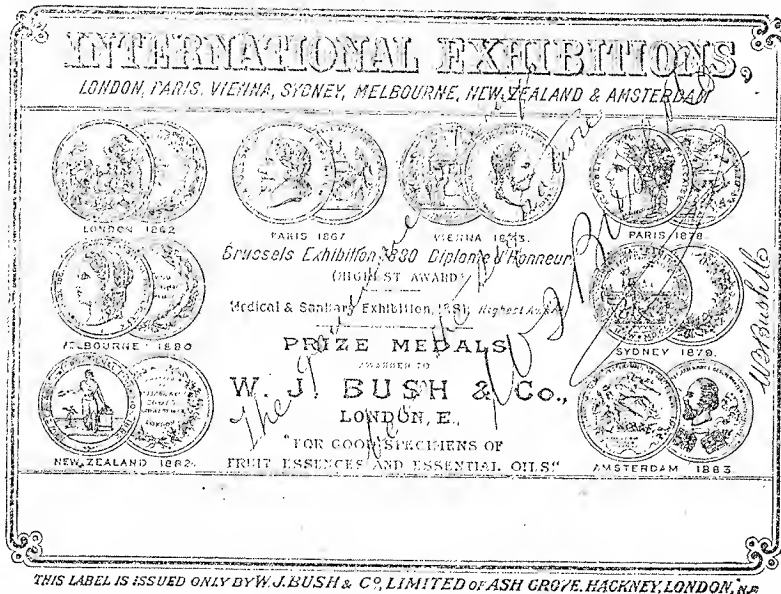 INTERNATIONAL EXHIBITIONS,
LONDON, PARIS, VIENNA, SYDNEY, MELBOURNE, NEW ZEALAND & AMSTERDAM
LONDON 1862
PARIS 1867
VIENNA 1873.
PARIS 1878
Brussels Exhibition, 1880 Diplome d'Honneur
(HIGHEST AWARD)
Medical & Sanitary Exhibition, 1881, Highest Award
MELBOURNE 1880
SYDNEY 1879.
PRIZE MEDALS
AWARDED TO
W. J. BUSH & Co.,
LONDON, E.,
"FOR GOOD SPECIMENS OF
FRUIT ESSENCES AND ESSENTIAL OILS"
NEW ZEALAND 1882.
AMSTERDAM 1883
The
W J Bush & Co
THIS LABEL IS ISSUED ONLY BY W. J. BUSH & Co, LIMITED OF ASH GROVE, HACKNEY, LONDON, N.E